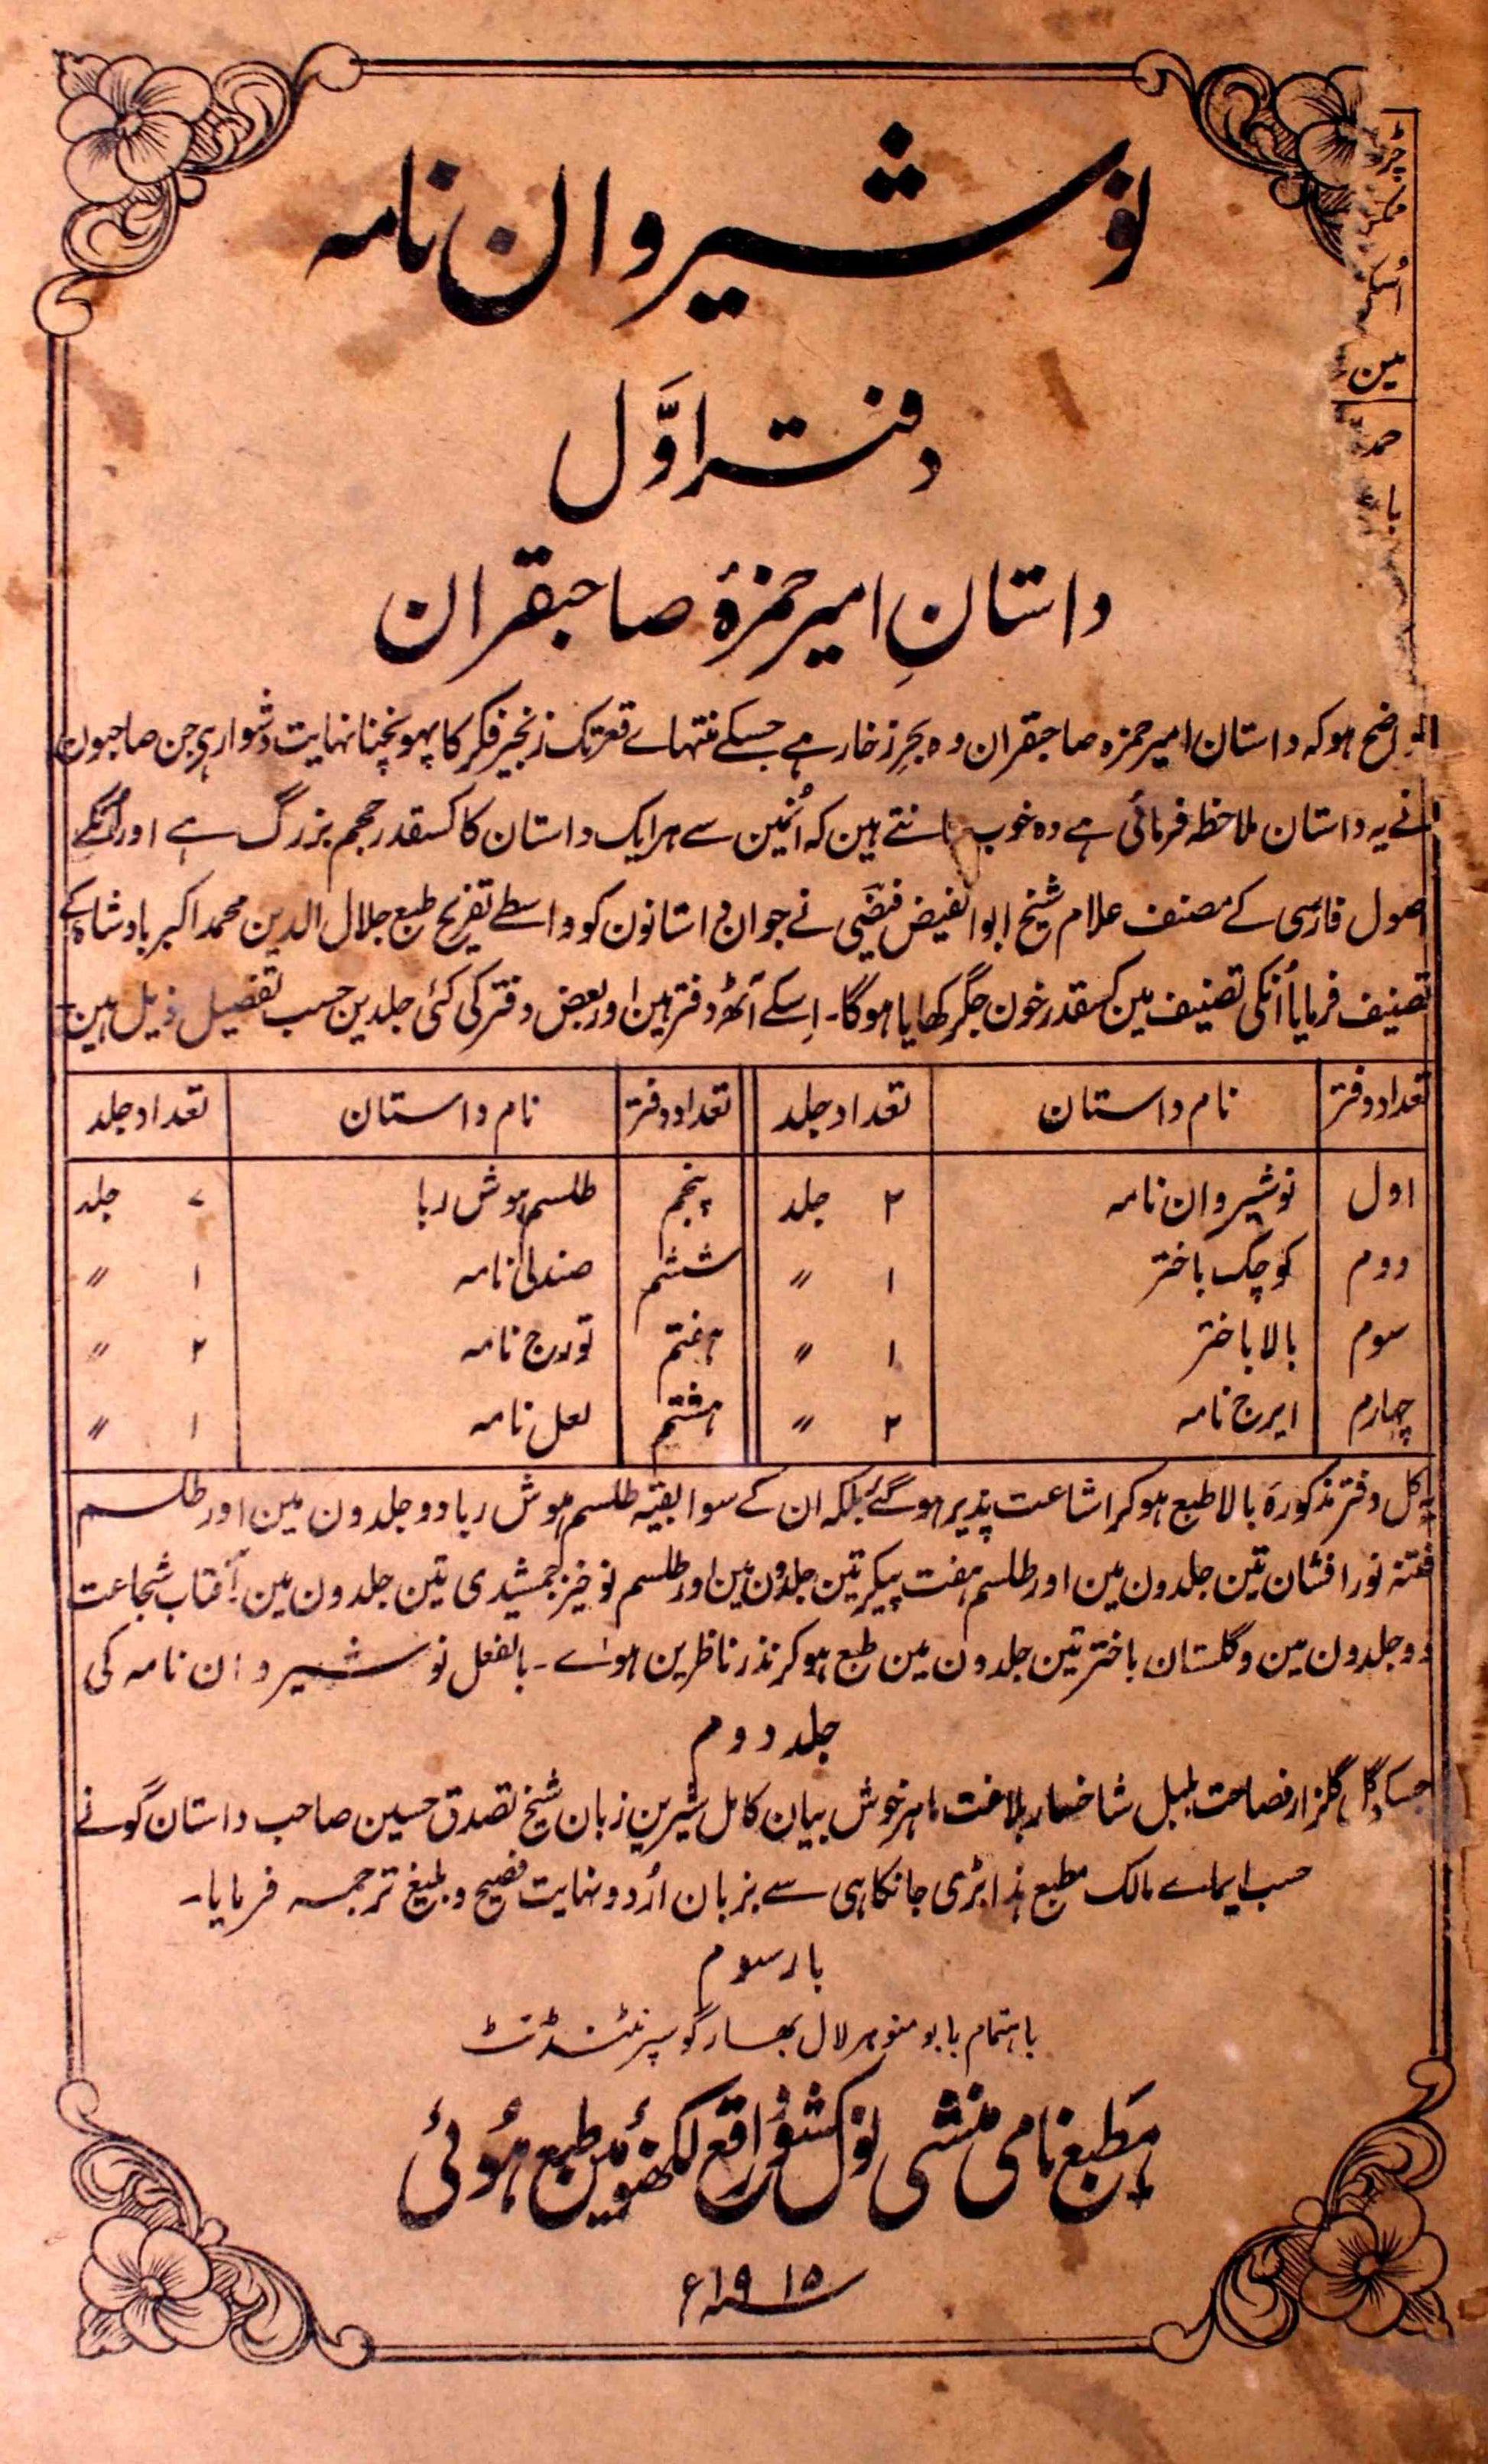 نوشیروان نامہ
دفتر اوّل
داستانِ امیر حمزۂ صاحبقران
واضح ہو کہ داستان امیر حمزہ صاحبقران وہ بحرِ زخار ہے جسکے منتہاے قعر تک زنجیر فکر کا پہونچنا نہایت دشوار ہے جن صاحبون
نے یہ داستان ملاحظہ فرمائی ہے وہ خوب جانتے ہین کہ اُنمین سے ہر ایک داستان کا کسقدر حجم بزرگ ہے اور اُنکے
اصول فارسی کے مصنف علام شیخ ابوالفیض فیضی نے جو ان داستانون کو واسطے تفریح طبع جلال الدین محمد اکبر بادشاہ کے
تصنیف فرمایا اُنکی تصنیف مین کسقدر خون جگر کھایا ہوگا۔ اِسکے آٹھ دفتر ہین اور بعض دفتر کی کئی جلدین حسب تفصیل ذیل ہین
تعداد دفتر نام داستان تعداد جلد تعداد دفتر نام داستان تعداد جلد
اول نوشیروان نامہ ۲ جلد پنجم طلسم ہوش ربا ۷ جلد
دوم کوچک باختر ۱〃 ششم صندلی نامہ ۱〃
سوم بالا باختر ۱〃 ہفتم تورج نامہ ۲〃
چہارم ایرج نامہ ۲〃 ہشتم لعل نامہ ۱〃
یہ کل دفتر مذکورہ بالا طبع ہو کر اشاعت پذیر ہو گئے بلکہ ان کے سوا بقیہ طلسم ہوش ربا دو جلدون مین اور طلسم
فتنہ نور افشان تین جلدون مین اور طلسم ہفت پیکر تین جلدون مین اور طلسم نوخیز جمشیدی تین جلدون مین آفتاب شجاعت
دو جلدون مین و گلستان باختر تین جلدون مین طبع ہو کر نذر ناظرین ہواے۔ بالفعل نوشیروان نامہ کی
جلد دوم
جسکا گل گلزار فصاحت بلبل شاخسار بلاغت ماہر خوش بیان کامل شیرین زبان شیخ تصدق حسین صاحب داستان گونے
حسب ایماے مالک مطبع ہذا بڑی جانکاہی سے بزبان اُردو نہایت فصیح و بلیغ ترجمہ فرمایا۔
بار سوم
باہتمام بابو منوہر لال بھارگو سپرنٹنڈنٹ
مطبع نامی منشی نولکشور واقع لکھنؤ مین طبع ہُوئی
سنہ ۱۹۱۵ء
مین
حمد
با